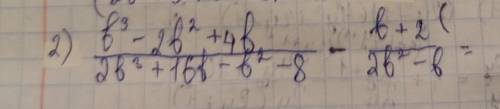 2) (b³ - 2b² + 4b)/(2b³ + 16b - b² - 8) - (b + 2)/(2b² - b) =